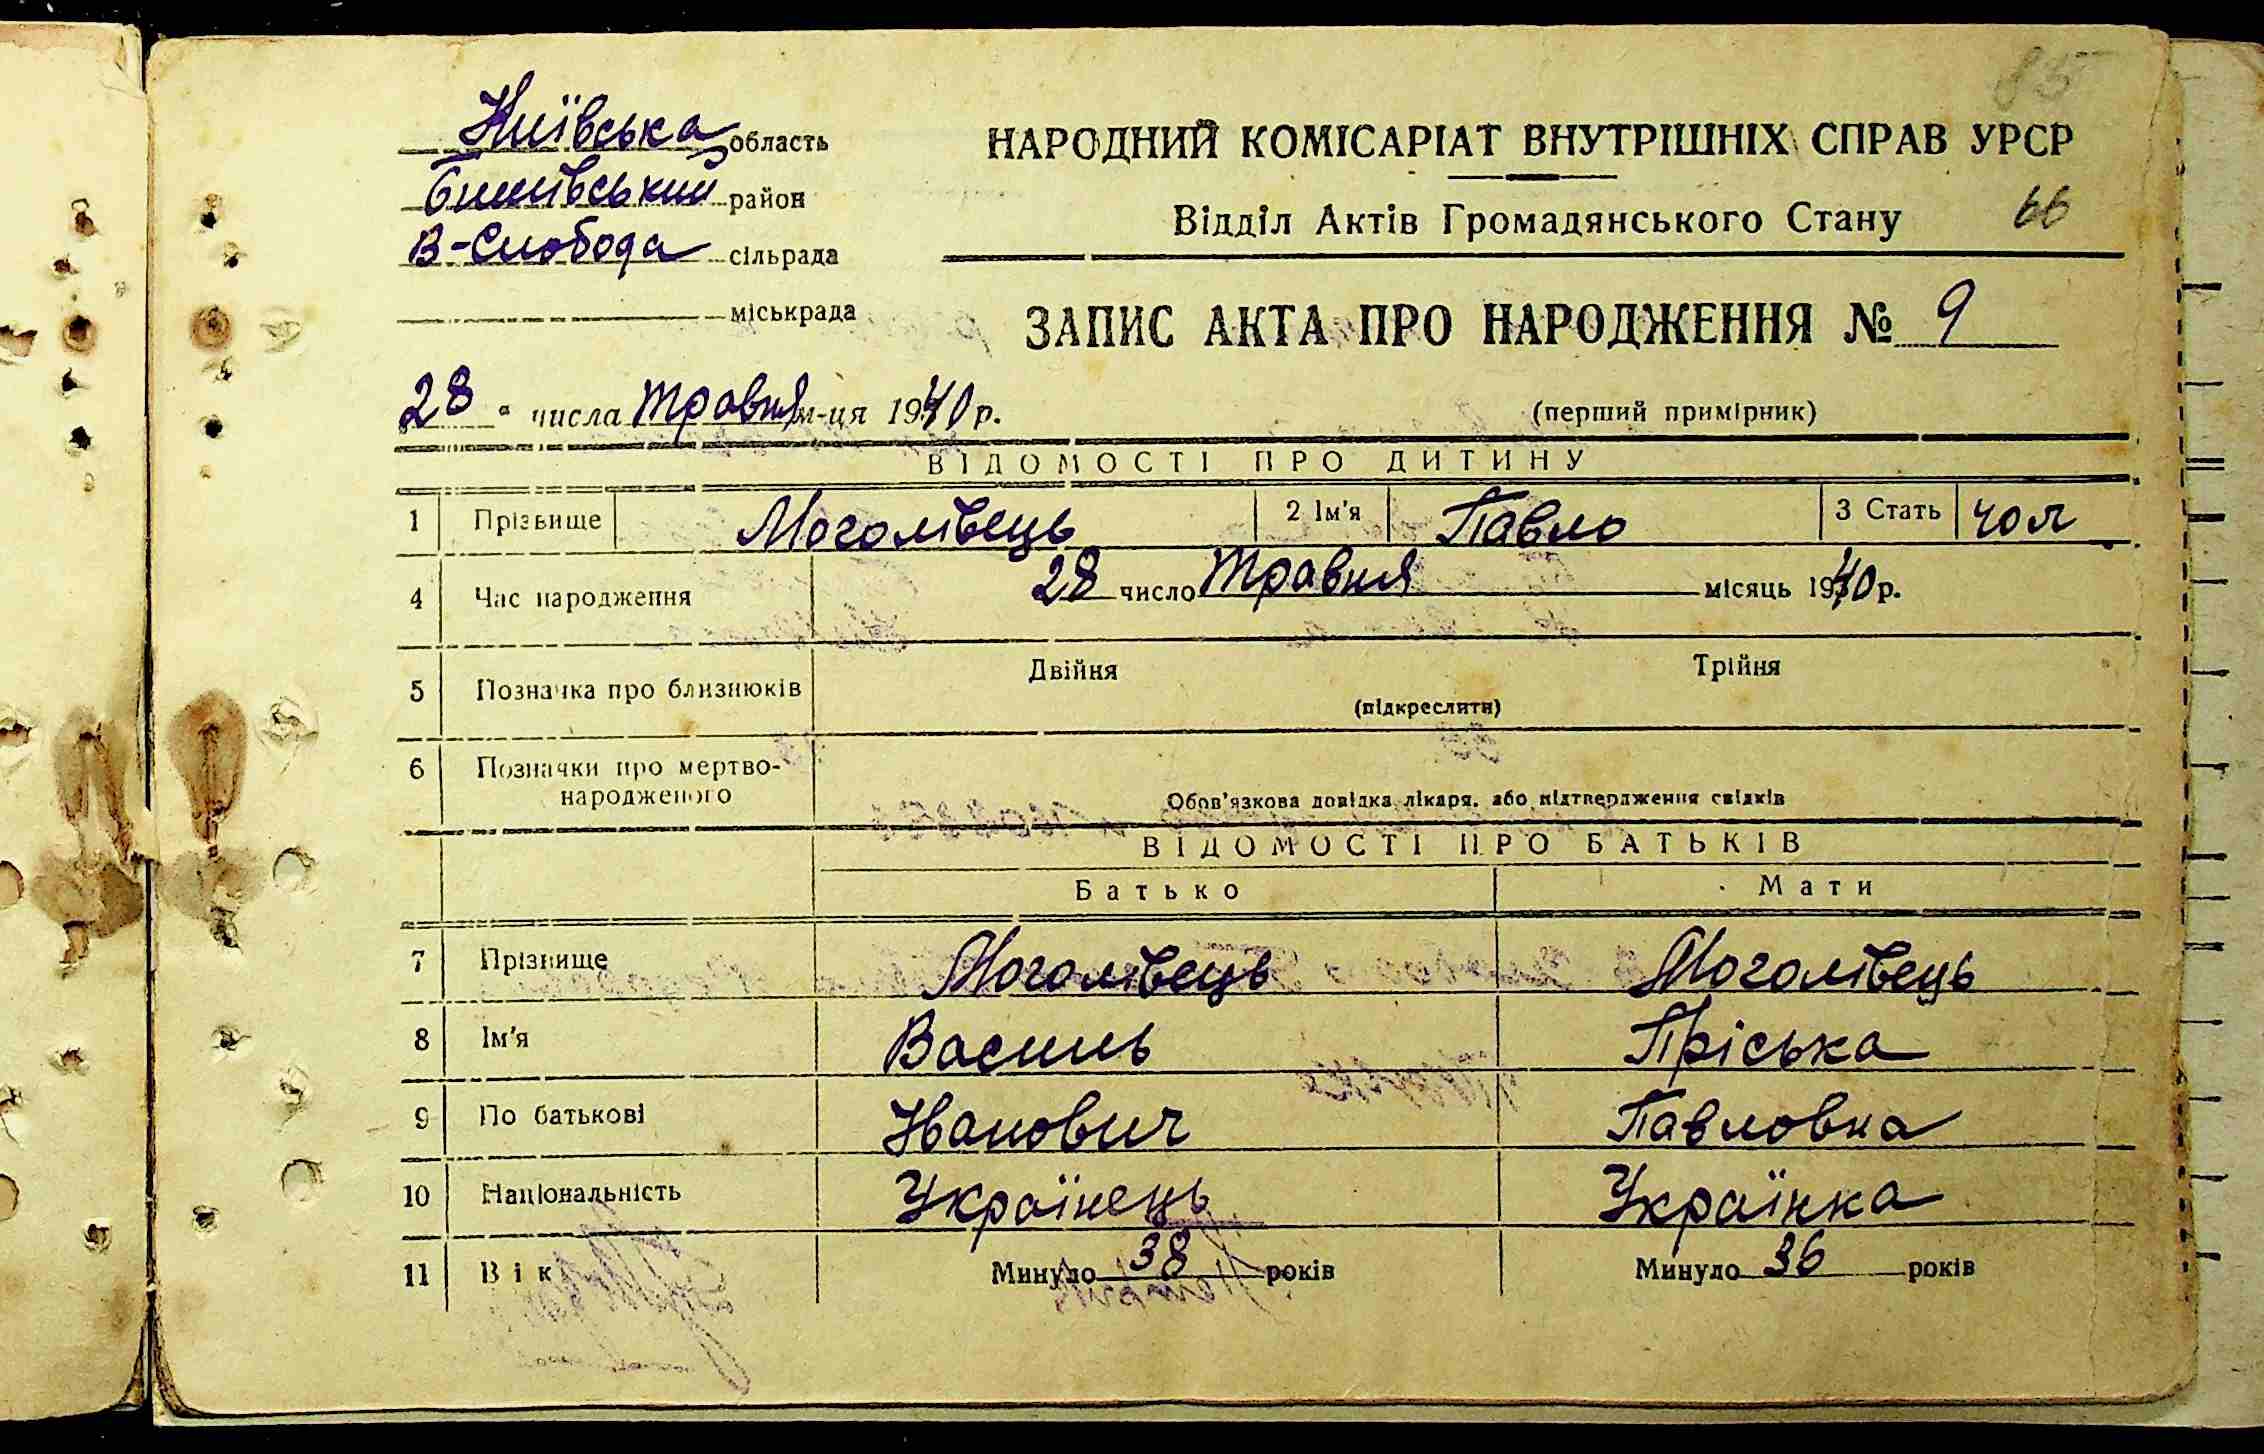 85
Київська область
НАРОДНИЙ КОМІСАРІАТ ВНУТРІШНІХ СПРАВ УРСР
Бишівський район
Відділ Актів Громадянського Стану 66
В-Слобода сільрада
міськрада
ЗАПИС АКТА ПРО НАРОДЖЕННЯ № 9
„28“ числа травня м-ця 1940 р.
(перший примірник)
ВІДОМОСТІ ПРО ДИТИНУ
1 Прізвище Моголівець 2 Ім'я Павло 3 Стать чол
4 Час народження 28 число травня місяць 1940 р.
5 Позначка про близнюків Двійня Трійня
(підкреслити)
6 Позначки про мертво-
народженого Обов'язкова довідка лікаря, або підтвердження свідків
ВІДОМОСТІ ПРО БАТЬКІВ
Батько Мати
7 Прізвище Моголівець Моголівець
8 Ім'я Василь Пріська
9 По батькові Іванович Павловна
10 Національність Українець Українка
11 Вік Минуло 38 років Минуло 36 років